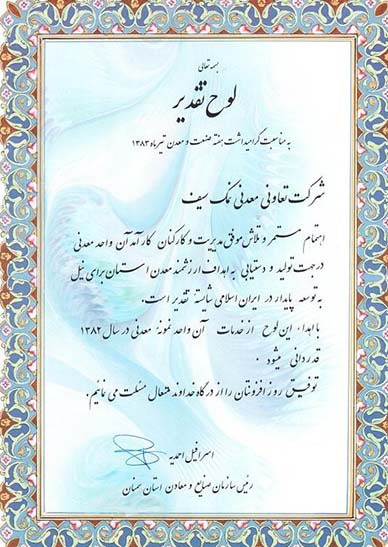 بسمه تعالی
لوح تقدیر
به مناسبت گرامیداشت هفته صنعت و معدن تیرماه ۱۳۸۳
شرکت تعاونی معدنی نمک سیف
اهتمام مستمر و تلاش موفق مدیریت و کارکنان کارآمد آن واحد معدنی
در جهت تولید و دستیابی به اهداف ارزشمند معدن استان برای نیل
به توسعه پایدار در ایران اسلامی شائسته تقدیر است.
با اهداء این لوح از خدمات آن واحد نمونۀ معدنی در سال ۱۳۸۲
قدردانی میشود.
توفیق روز افزونتان را از درگاه خداوند متعال مسئلت می نمائیم.
اسرافیل احمدیه
رئیس سازمان صنایع و معادن استان سمنان